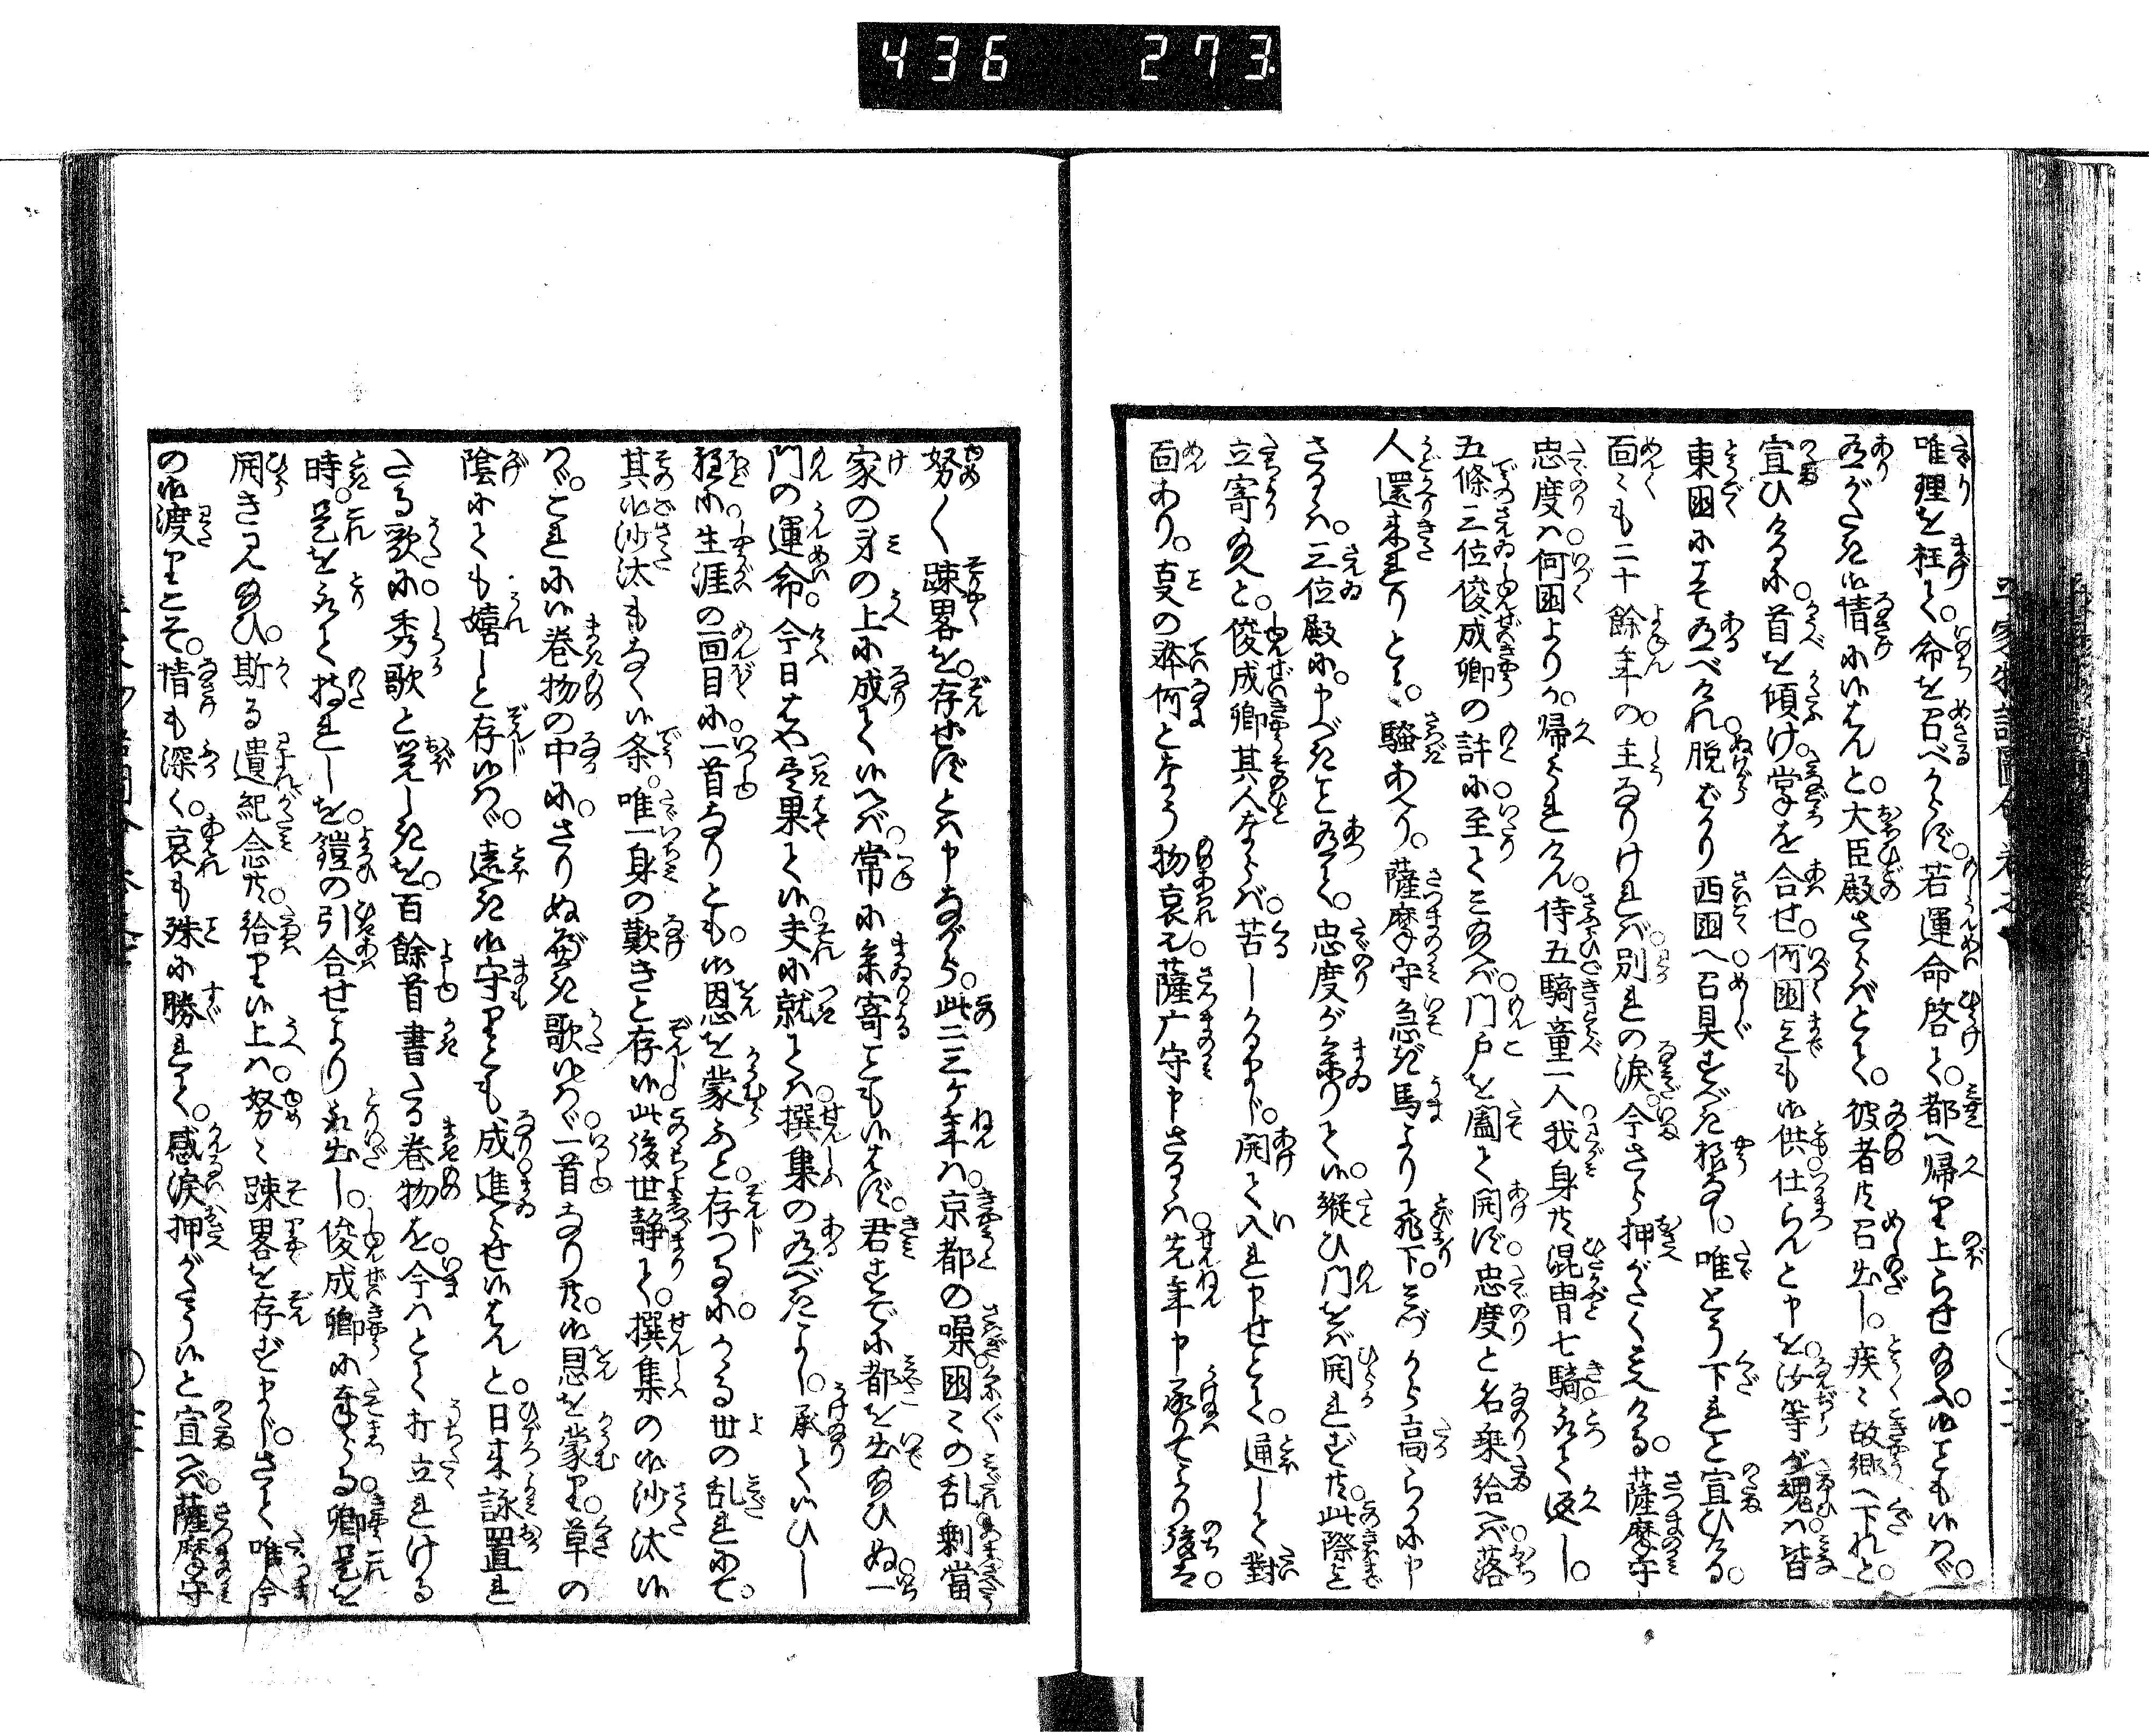 436 273
唯理を枉て。命を召べからず。若運命啓て。都へ帰り上らせ給ふ御ことも候はゞ。
有がたき御情に候はんと。大臣殿さらばとて。彼者共召出し。疾々故郷へ下れと
宣ひけるに。首を傾け。掌を合せ。何国迄も御供仕らんと申を。汝等が魂は皆
東国にこそ有べけれ脱がらばかり西国へ召具すべき様なし。唯とう下れと宣ひける。
面々も二十餘年の。主なりければ別れの涙。今さら押がたく見へける。薩摩守
忠度は何国よりか。帰られけん。侍五騎童一人我身共混冑七騎取て返し。
五條三位俊成卿の許に至て見給へば門戸を闔て開ず。忠度と名乗給へば落
人還来れりとて。騒あへり。薩摩守急ぎ馬より飛下。みづから高らかに申
さるゝは。三位殿に。申べきこと有て。忠度が参りて候。縦ひ門をば開れず共。此際迄
立寄給へと。俊成卿其人ならば。苦しかるまじ。開て入れ申せとて。通して對
面あり。事の躰何となう物哀也。薩广守申さるゝは先年申承りてより後は。
努々疎畧を。存せずとは申ながら。此二三ヶ年は。京都の噪国々の乱剰當
家の身の上に成て候へば。常に参寄こともはず。君すでに都を出給ひぬ一
門の運命。今日はや尽果て候。夫に就ては撰集の有べきよし。承て候ひし
程に。生涯の面目に。一首なりとも。御恩を蒙ふと。存つるに。かゝる世の乱れにて。
其御沙汰もなく候条。唯一身の歎きと存候此後世静て。撰集の御沙汰候
はゞ。これに候巻物の中に。さりぬべき歌候はゞ。一首なり共。御恩を蒙り。草の
陰にても嬉しと存候はゞ。遠き御守りとも成進らせ候はんと。日来詠置れ
たる歌に。秀歌と覚しきを。百餘首書たる巻物を。今はとて打立れける
時。是を取て持れしを。鎧の引合せより取出し。俊成卿に奉らる。卿是を
開き見給ひ。斯る遺紀念共。給り候上は。努々疎畧を存ずまじ。さて唯今
の御渡りこそ。情も深く。哀も殊に勝れて。感涙押がたう候と宣へば。薩摩守